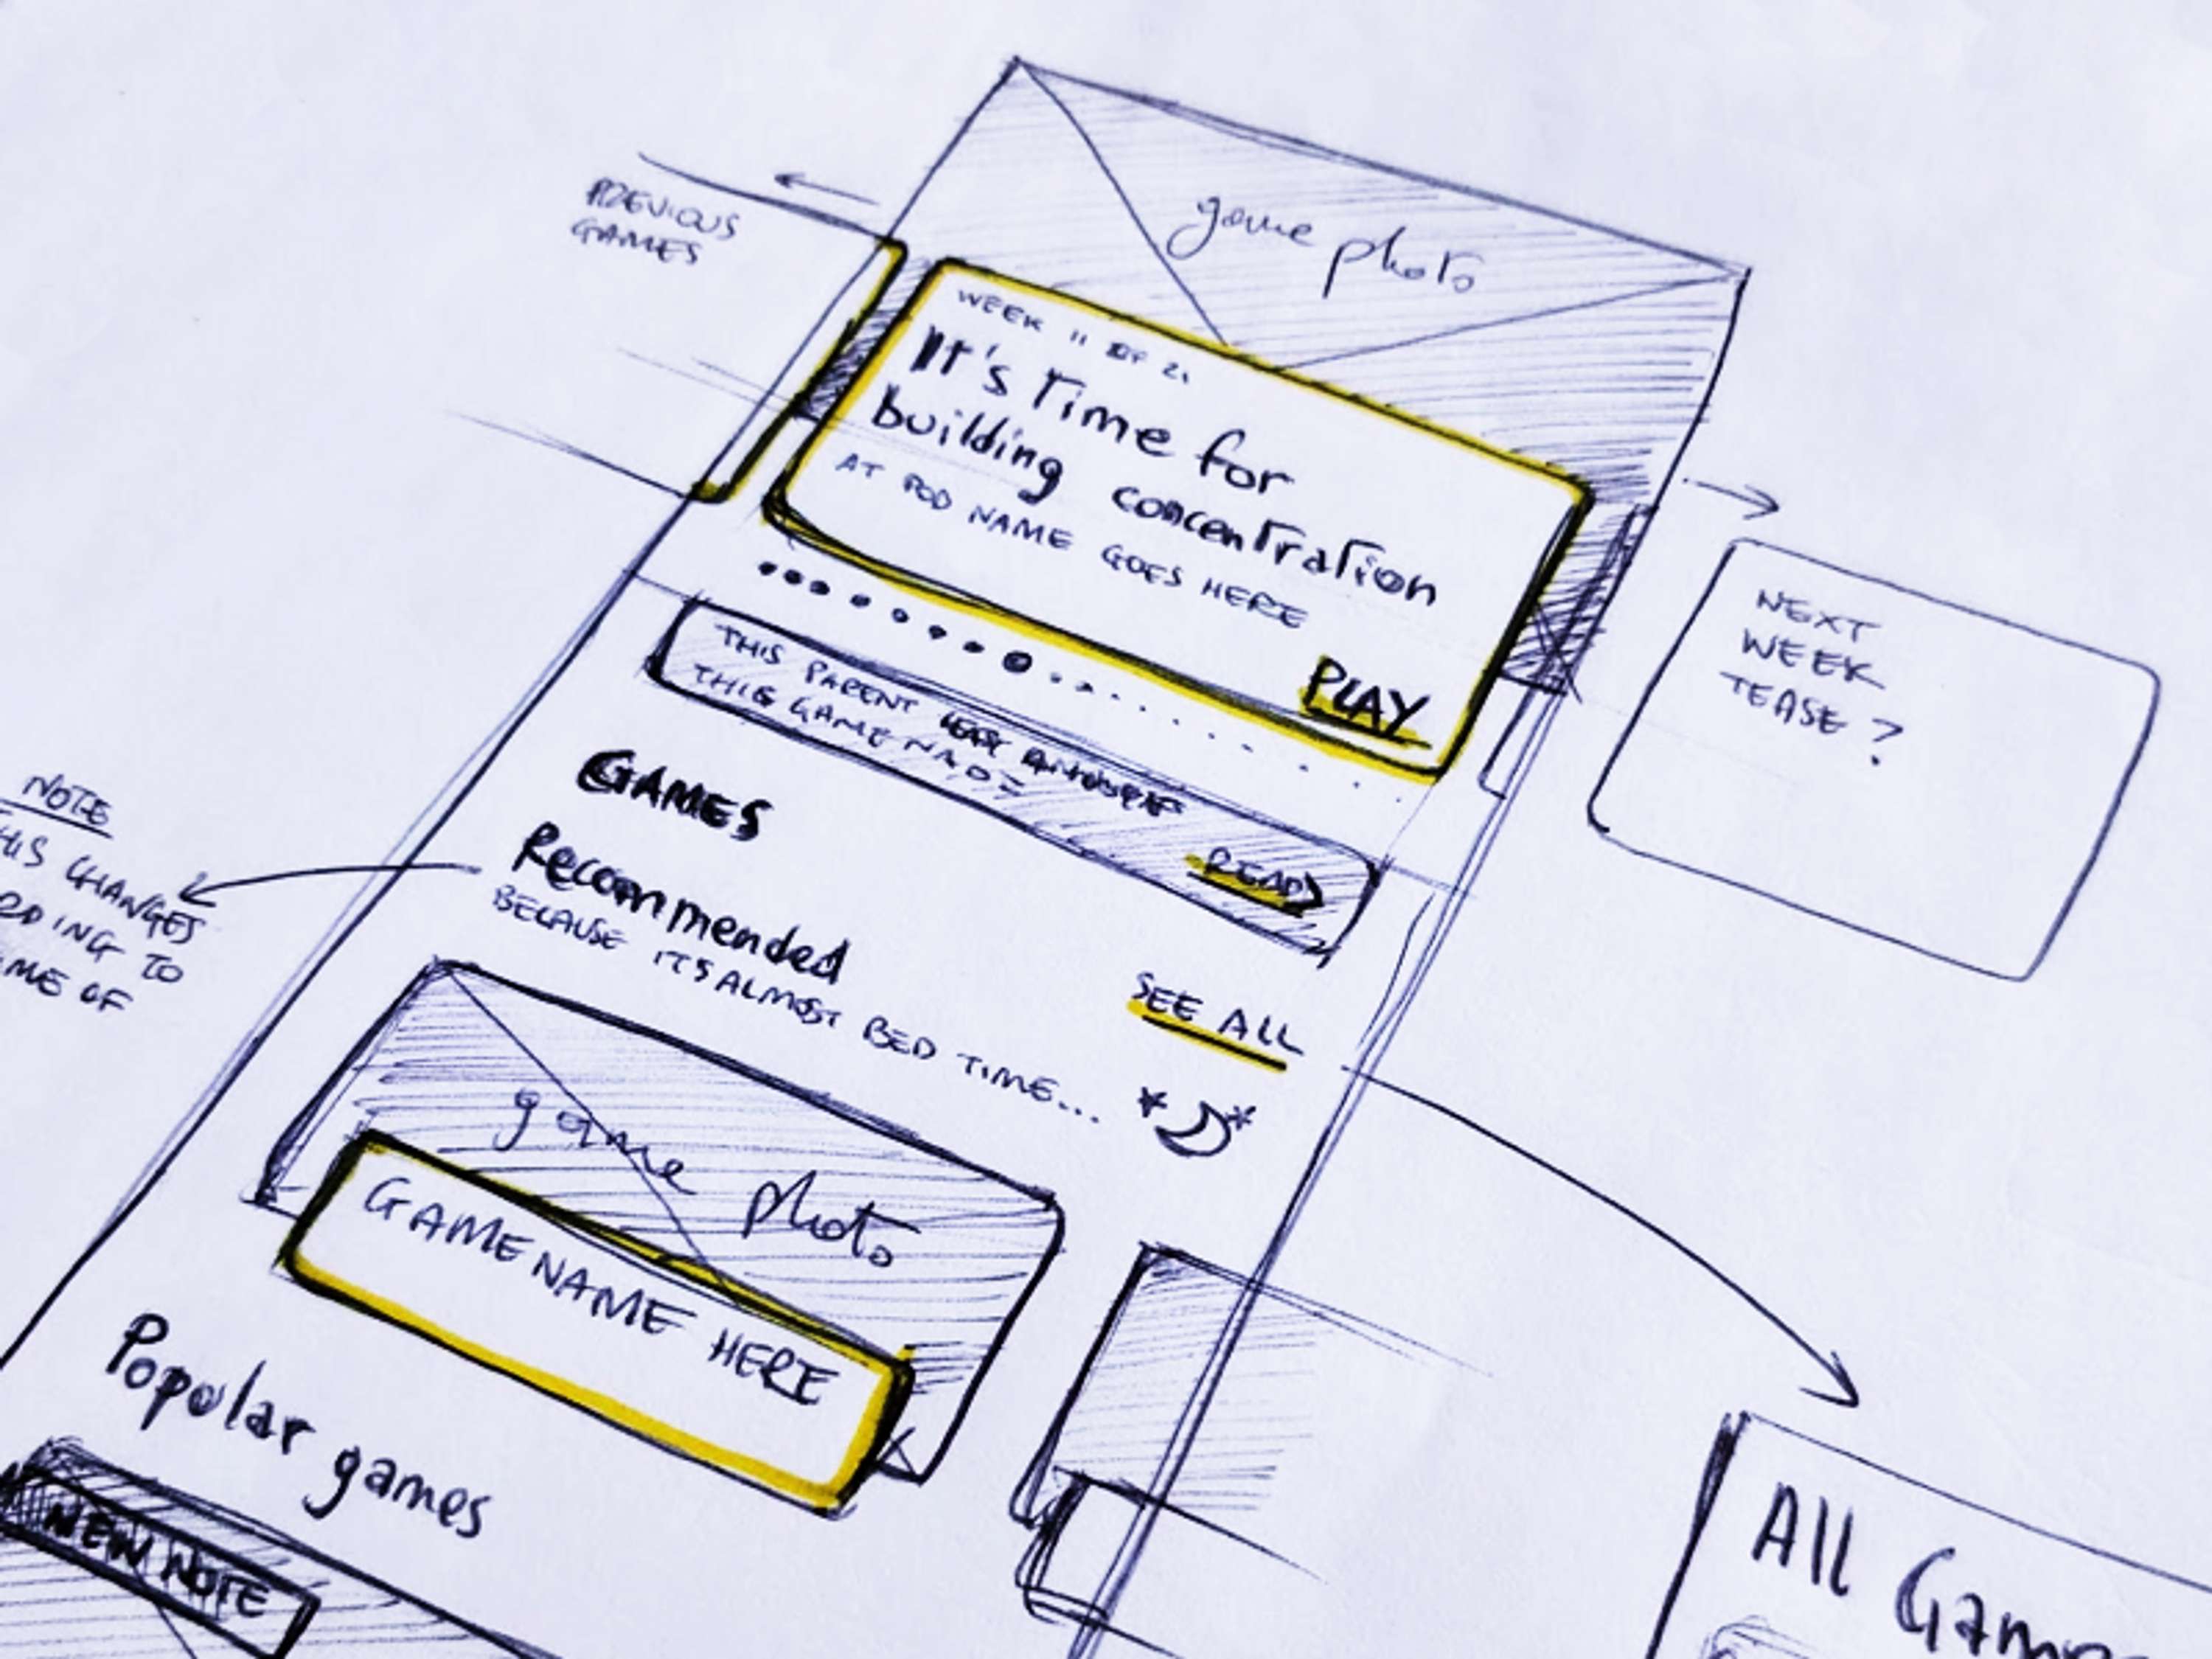 game photo
PREVIOUS
GAMES
WEEK 11 OF 21
It's time for
building concentration
AT POD NAME GOES HERE
PLAY
NEXT
WEEK
TEASE ?
THIS PARENT
THIS GAME
READ
GAMES
Recommended
BECAUSE ITS ALMOST BED TIME...
SEE ALL
NOTE
HIS CHANGES
RDING TO
ME OF
game photo
GAME NAME HERE
Popular games
NEW NOTE
All Game